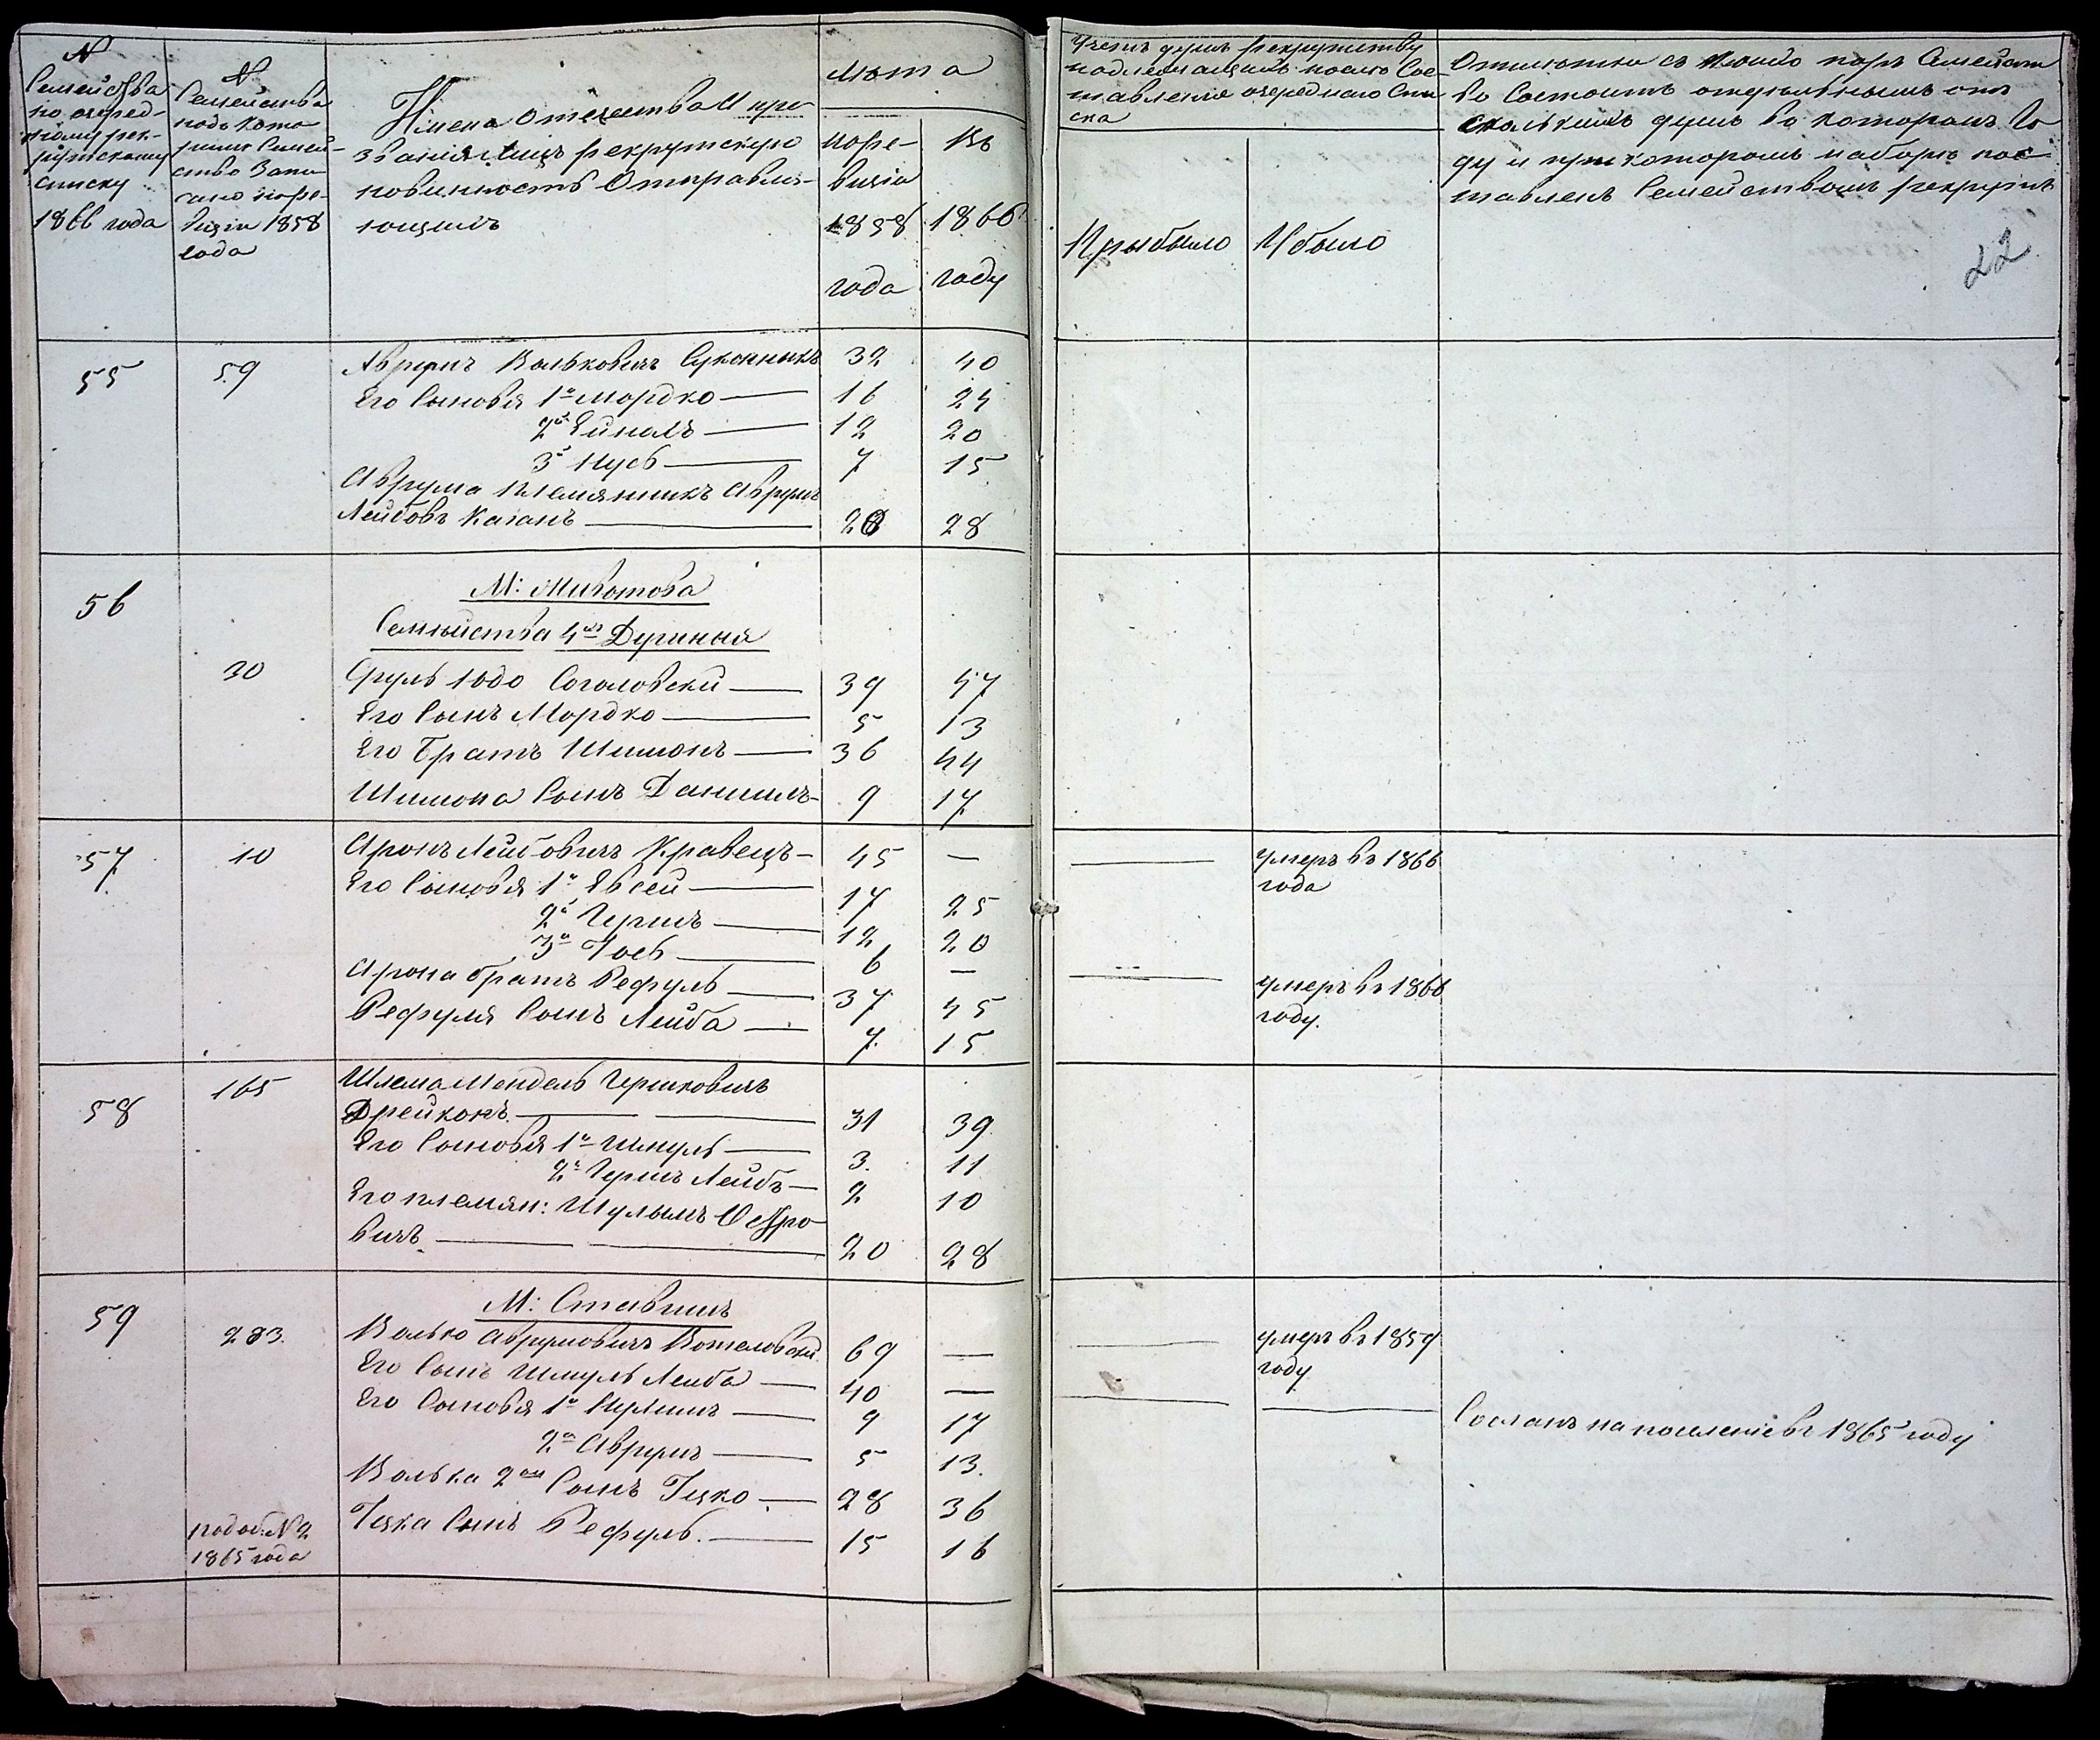 №
Семейства
по очеред-
ному рек-
рутскому
списку
1866 года
№
Семейства
подъ кото
рымъ Семей-
ство Запи
сано по ре-
визіи 1858
года
Имена отчества И про
званія лицъ рекрутскую
повинность Отправля-
ющихъ
лѣта
по ре-
визіи
1858
года
Въ
1866
году
Учетъ душъ рекрутству
подлежащихъ послѣ Сос-
тавленія очереднаго Спи
ска
Прыбыло
Убыло
Отмѣтка съ какихъ поръ Семейст
во Состоитъ отдѣльнымъ отъ
сколькихъ душъ во которомъ Го
ду и при которомъ наборѣ пос
тавленъ Семействомъ рекрутъ
22
55 59 Аврумъ Вольковичъ Суконникъ 32 40
Его Сыновья 1й Мордко 16 24
2й Ейналъ 12 20
3й Нусь 7 15
Аврума племянникъ Аврумъ
Лейбовъ Каганъ 20 28
56
М: Животова
Семѣйства 4хъ Душныя
30 Сруль Юдо Соголовски 39 47
Его Сынъ Мордко 5 13
Его Братъ Шимонъ 36 44
Шимона Сынъ Данишлъ 9 17
57 10 Аронъ Лейбовичъ Кравецъ 45 — умеръ въ 1866
года
Его Сыновья 1й Евсей 17 25
2й Гершъ 12 20
3й Іось 6 — умеръ въ 1866
году.
Арона братъ Рефуль 37 45
Рефуля Сынъ Лейба 7 15
58 165 Шлема Мендель Гершковичъ
Дрейконъ 31 39
Его Сыновья 1й Шмуль 3 11
2й Гершъ Лейбъ 2 10
Его племян: Шулымъ Остро
вичъ 20 28
59
М: Ставищъ
283. Волько Аврумовичъ Котеловски 69 — умеръ въ 1859
году
Его Сынъ Шмуль Лейба 40 — Сосланъ на поселеніе въ 1865 году
Его Сыновья 1й Нухимъ 9 17
2й Аврумъ 5 13.
Волька 2ой Сынъ Іцко 28 36
подоб. №2
1865 года
Іцка Сынъ Рефуль. 15 16